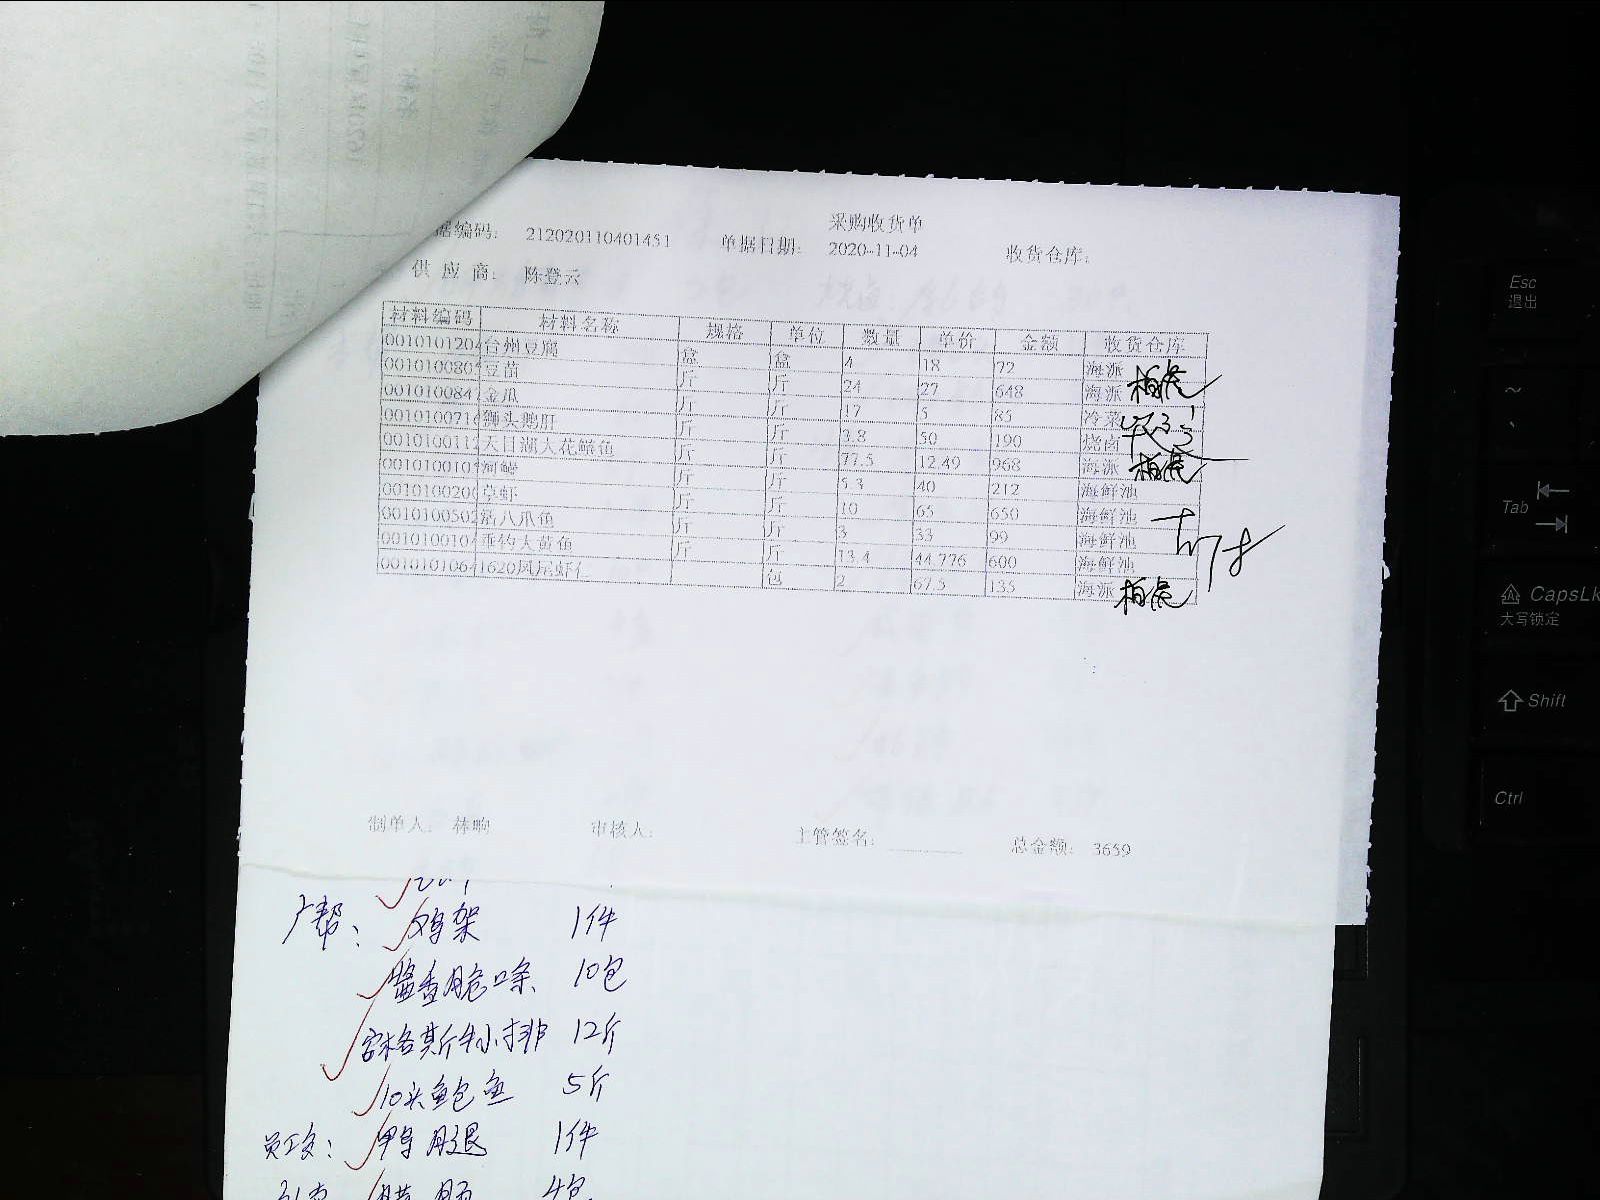 采购收货单
据编码: 212020110401451 单据日期: 2020-11-04 收货仓库:
供应商: 陈登云
材料编码 材料名称 规格 单位 数量 单价 金额 收货仓库
0010101204 台州豆腐 盒 盒 4 18 72 海派
001010080 豆苗 斤 斤 24 27 648 海派
001010084 金瓜 斤 斤 17 5 85 冷菜
001010071 狮头鹅肝 斤 斤 3.8 50 190 烧卤
001010011 天目湖大花鲢鱼 斤 斤 77.5 12.49 968 海派
001010010 河鳗 斤 斤 5.3 40 212 海鲜池
001010020 草虾 斤 斤 10 65 650 海鲜池
001010050 活八爪鱼 斤 斤 3 33 99 海鲜池
001010010 垂钓大黄鱼 斤 斤 13.4 44.776 600 海鲜池
001010106 1620凤尾虾仁 包 2 67.5 135 海派
制单人: 林响 审核人: 主管签名: 总金额: 3659
广帮: 鸡架 1件
酱香脆 10包
安格斯牛小排 12斤
10头鲍鱼 5斤
员工餐: 鸭腿 1件
4包
Esc
退出
~
Tab
CapsLk
大写锁定
Shift
Ctrl